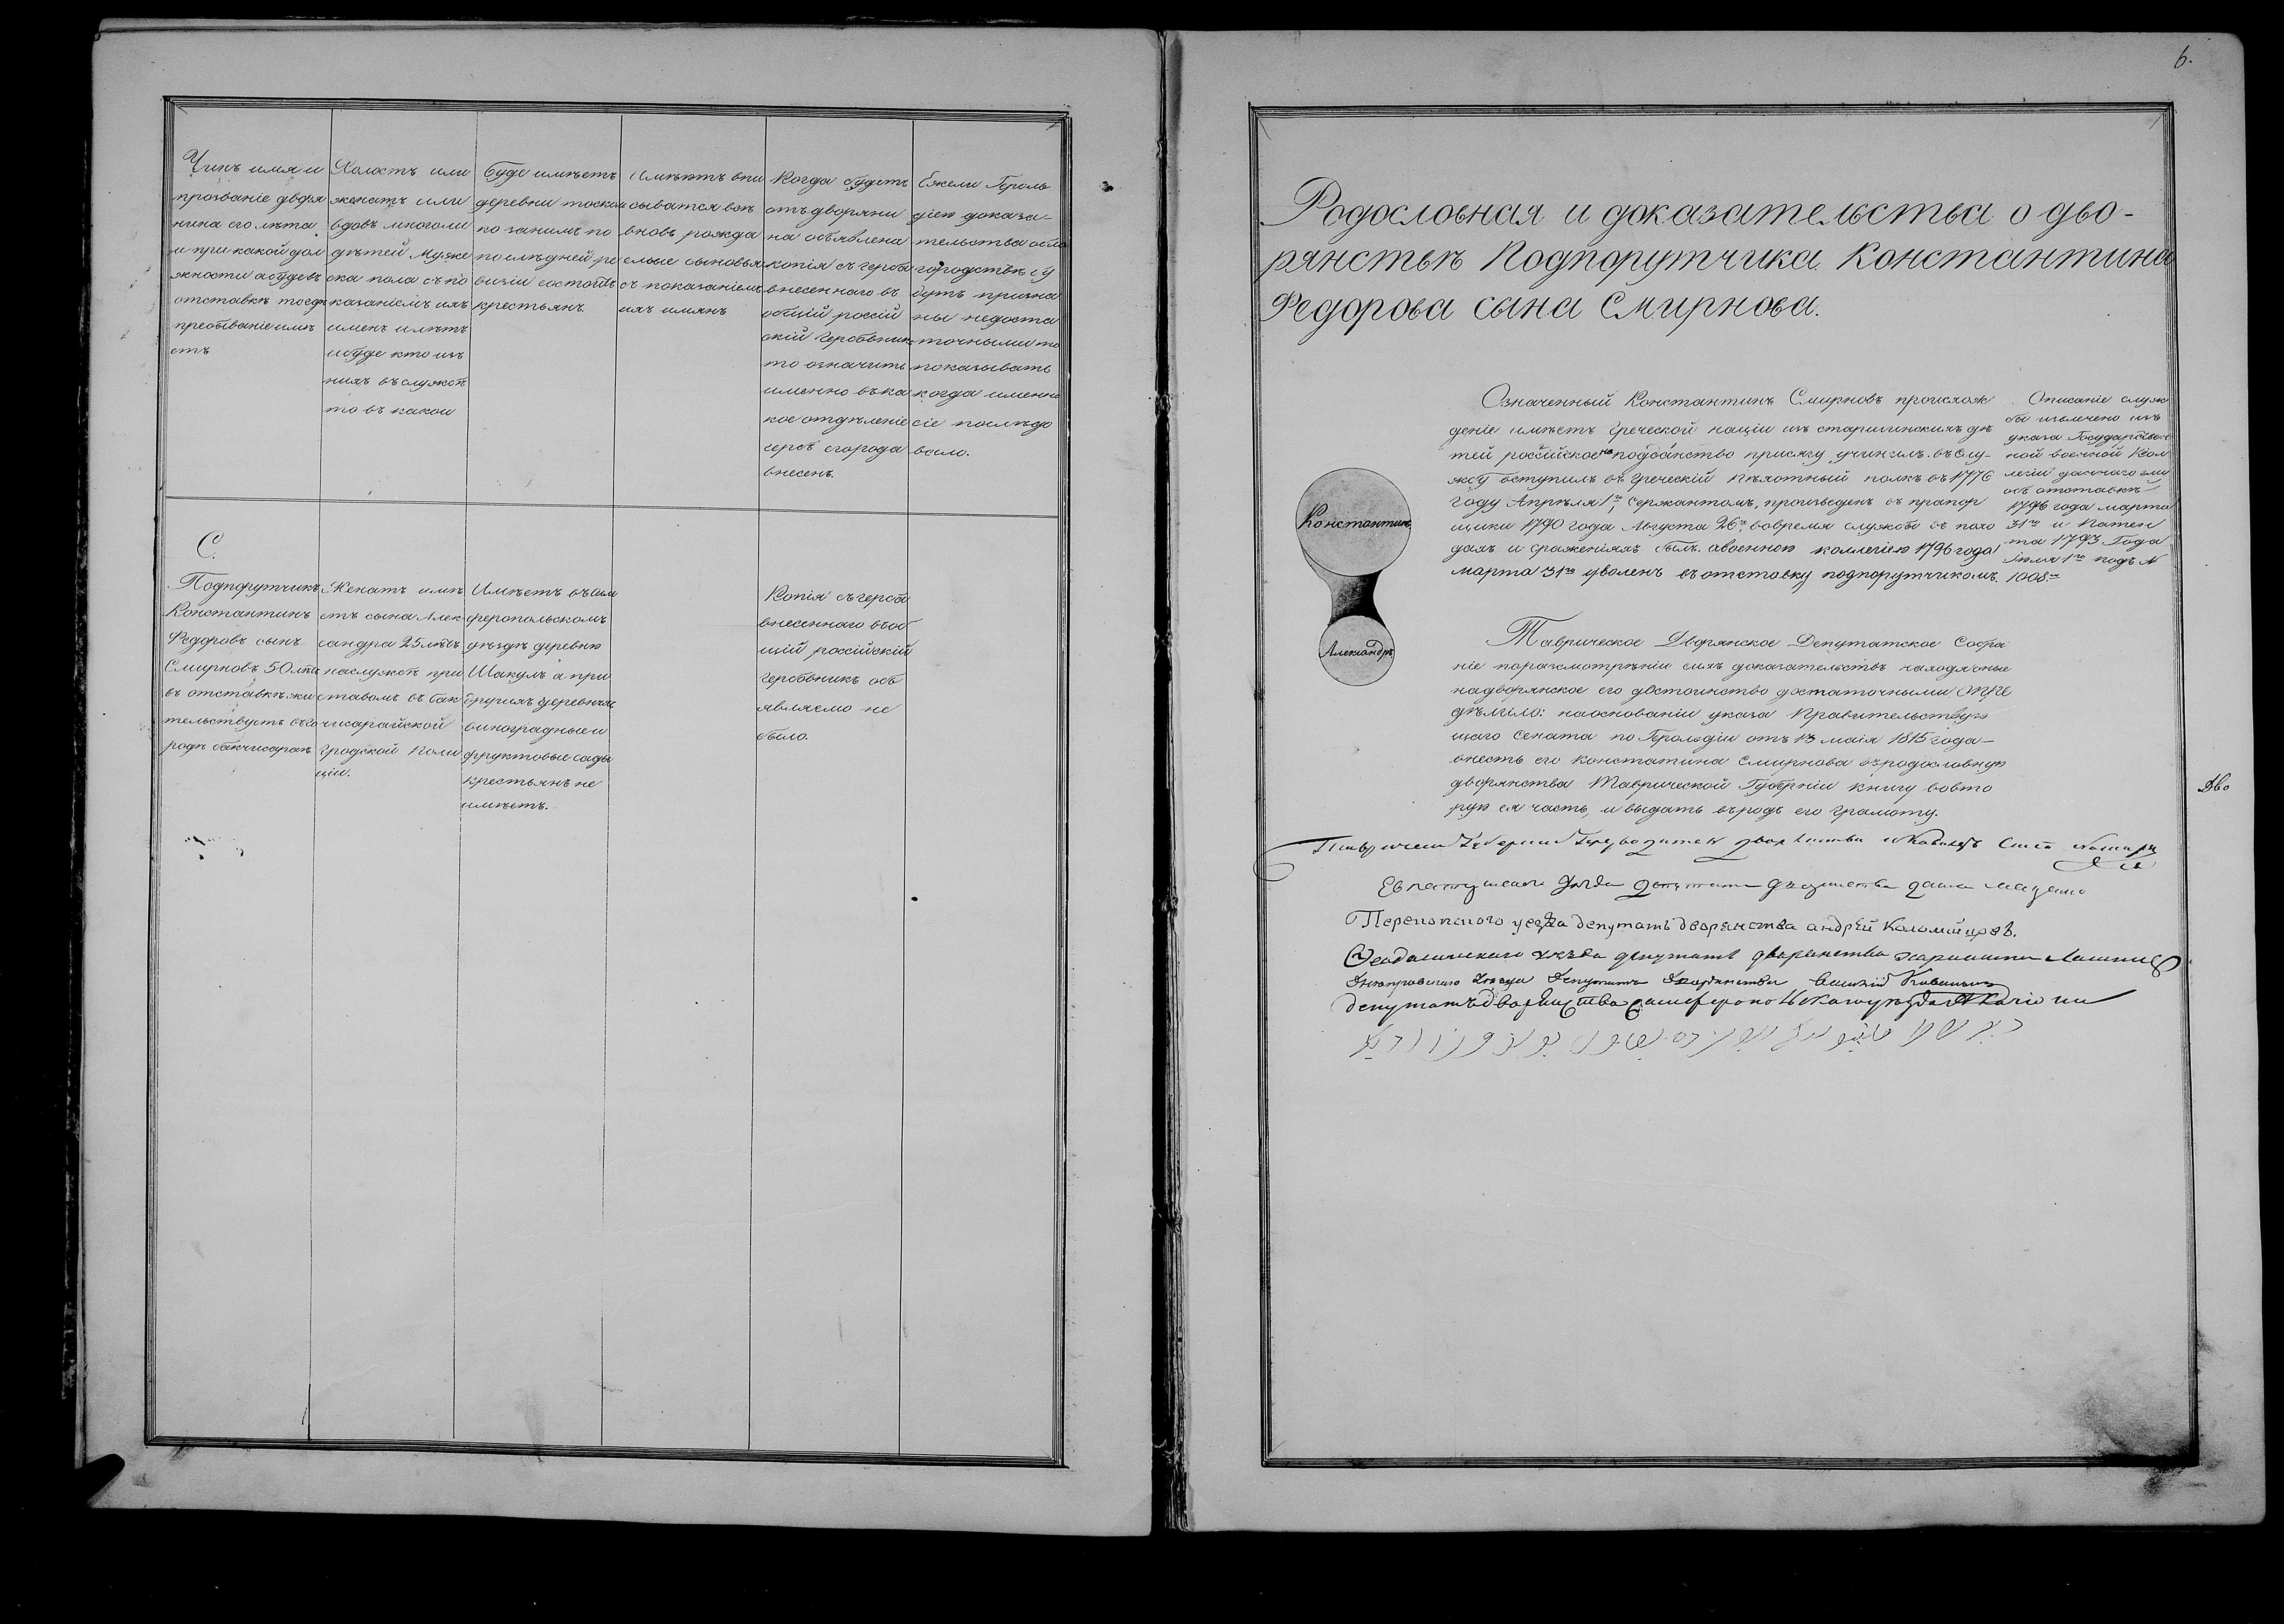 Чинъ имя и
прозваніе дворя
нина его лѣта
и при какой дол
жности а буде въ
отставкѣ то гдѣ
пребываніе имѣ
етъ
Холостъ или
женатъ или
вдовъ многоли
дѣтей Муже
ска пола съ по
казаніемъ ихъ
именъ и лѣтъ
и буде кто изъ
нихъ въ службѣ
то въ какой
Буде имѣетъ
деревни то скол
ко за нимъ по
послѣдней ре
визіи состоитъ
крестьянъ.
Имѣютъ впи
сыватся всѣ
вновь рожда
емые сыновья
съ показаніемъ
ихъ имянъ
Когда будетъ
отъ дворяни
на объявлена
копія съ герба
внесеннаго въ
общій россій
скій Гербовникъ
то означить
именно въ ка
кое отдѣленіе
сербъ его рода
внесенъ.
Ежели Героль
діею доказа-
тельства о бла
городствѣ бу
дутъ призна
ны недоста
точными то
показывать
когда именно
сіе послѣдо
вало.
С.
Подпорутчикъ
Константинъ
Федоровъ сынъ
Смирновъ 50 лѣтъ
въ отставкѣ жи
тельствуетъ въ го
родѣ бакчисараѣ
Женатъ имѣ
етъ сына Алек
сандра 25 лѣтъ
на службѣ при
ставомъ въ бак
чисарайской
градской Поли
ціи.
Имѣетъ въ Сим
феропольскомъ
уѣздѣ деревню
Шакулъ а при
другихъ деревняхъ
виноградные и
фруктовые сады
крестьянъ не
имѣетъ.
Копія съ герба
внесеннаго въ об
щій россійскій
гербовникъ объ
являемо не
было.
6.
Родословная и доказательства о дво-
рянствѣ Подпорутчика Константина
Федорова сына Смирнова.
Означенный Константинъ Смирновъ происхож
деніе имѣетъ Греческой націи изъ старшинскихъ дѣ
тей россійское на подданство присягу учинилъ. въ Слу-
жбу вступилъ въ Греческій пѣхотный полкъ въ 1776
году Апрѣля 1го, Сержантомъ, произведенъ въ прапор
щики 1790 года Августа 26го, вовремя службы въ похо
дахъ и сраженіяхъ былъ. авоенною коллегіею 1796 года
марта 31го уволенъ въ отставку подпорутчикомъ.
Описаніе служ
бы извлечено изъ
указа Государствен
ной военной Кол
легіи даннаго ему
объ отставкѣ
1796 года марта
31го и Патен
та 1793 Года
Іюля 1го подъ №
1008м
Константинъ
Александръ
Таврическое Дворянское Депутатское Собра
ніе поразсмотрѣніи сихъ доказательствъ находя оные
надворянское его достоинство достаточными опре
дѣлило: наоснованіи указа Правительствую
щаго Сената по Герольдіи отъ 13 маія 1815 года-
внесть его Констатина Смирнова въ родословную
дворянства Таврической Губерніи книгу вовто
рую ея часть, и выдать въ родъ его грамоту.
Дво
Перекопского уезда депутатъ дворянства андрѣй Коломѣйцовъ.
Феодосійскаго уѣзда депутатъ дворянства
Днепровскаго Уѣзда Депутатъ Дворянства
депутатъ дворянства